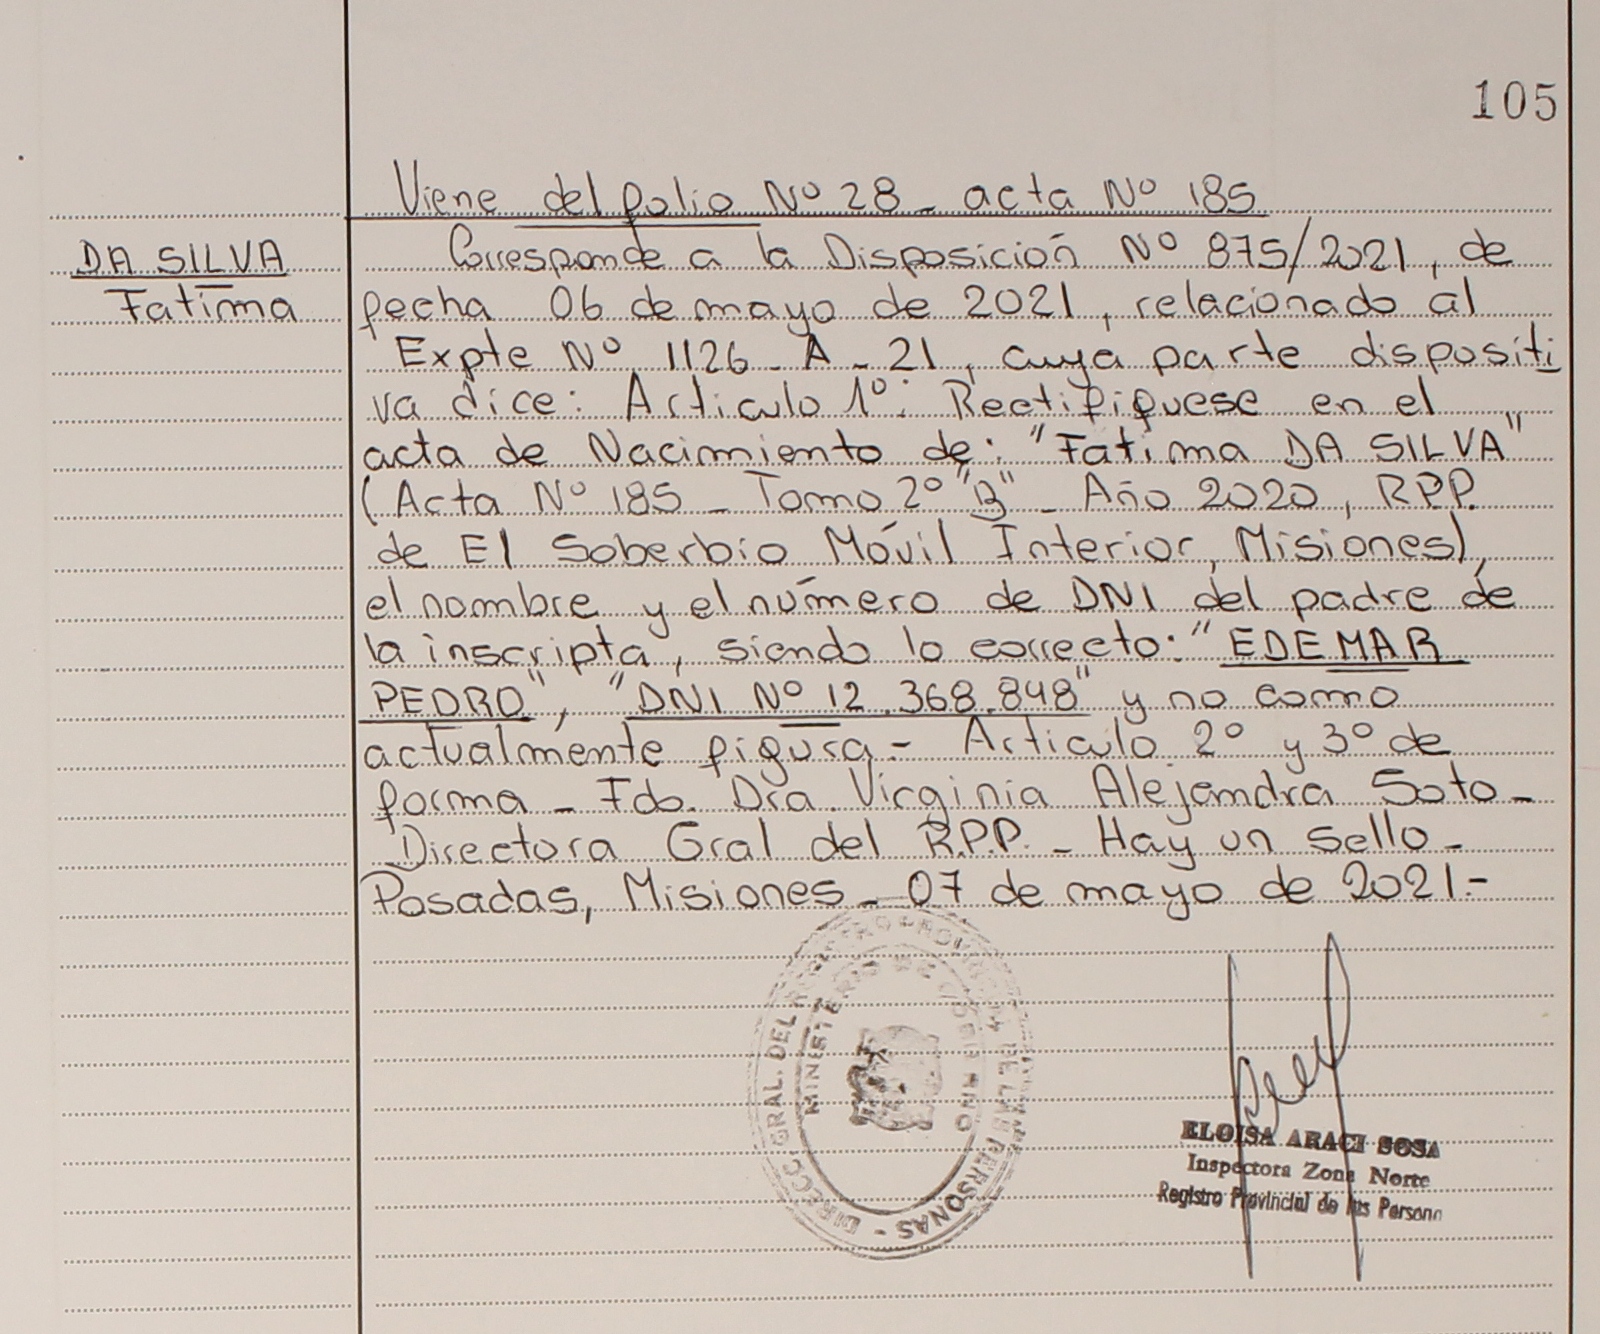 105
Viene del folio Nº 28 - acta Nº 185
DA SILVA
Fatima
Corresponde a la Disposición Nº 875/2021, de
fecha 06 de mayo de 2021, relacionado al
Expte Nº 1126 - A - 21, cuya parte dispositi
va dice: Articulo 1º: Rectifiquese en el
acta de Nacimiento de: "Fátima DA SILVA"
(Acta Nº 185 - Tomo 2º "B" - Año 2020, R.P.P.
de El Soberbio Móvil Interior, Misiones),
el nombre y el número de DNI del padre de
la inscripta, siendo lo correcto: "EDEMAR
PEDRO", "DNI Nº 12.368.848" y no como
actualmente figura.- Articulo 2º y 3º de
forma - Fdo. Dra. Virginia Alejandra Soto -
Directora Gral del R.P.P. - Hay un sello -
Posadas, Misiones - 07 de mayo de 2021.-
DIRECC. GRAL. DEL REGISTRO PROVINCIAL DE LAS PERSONAS -
MINISTERIO DE GOBIERNO
ELOISA ARACI SOSA
Inspectora Zona Norte
Registro Provincial de las Persona